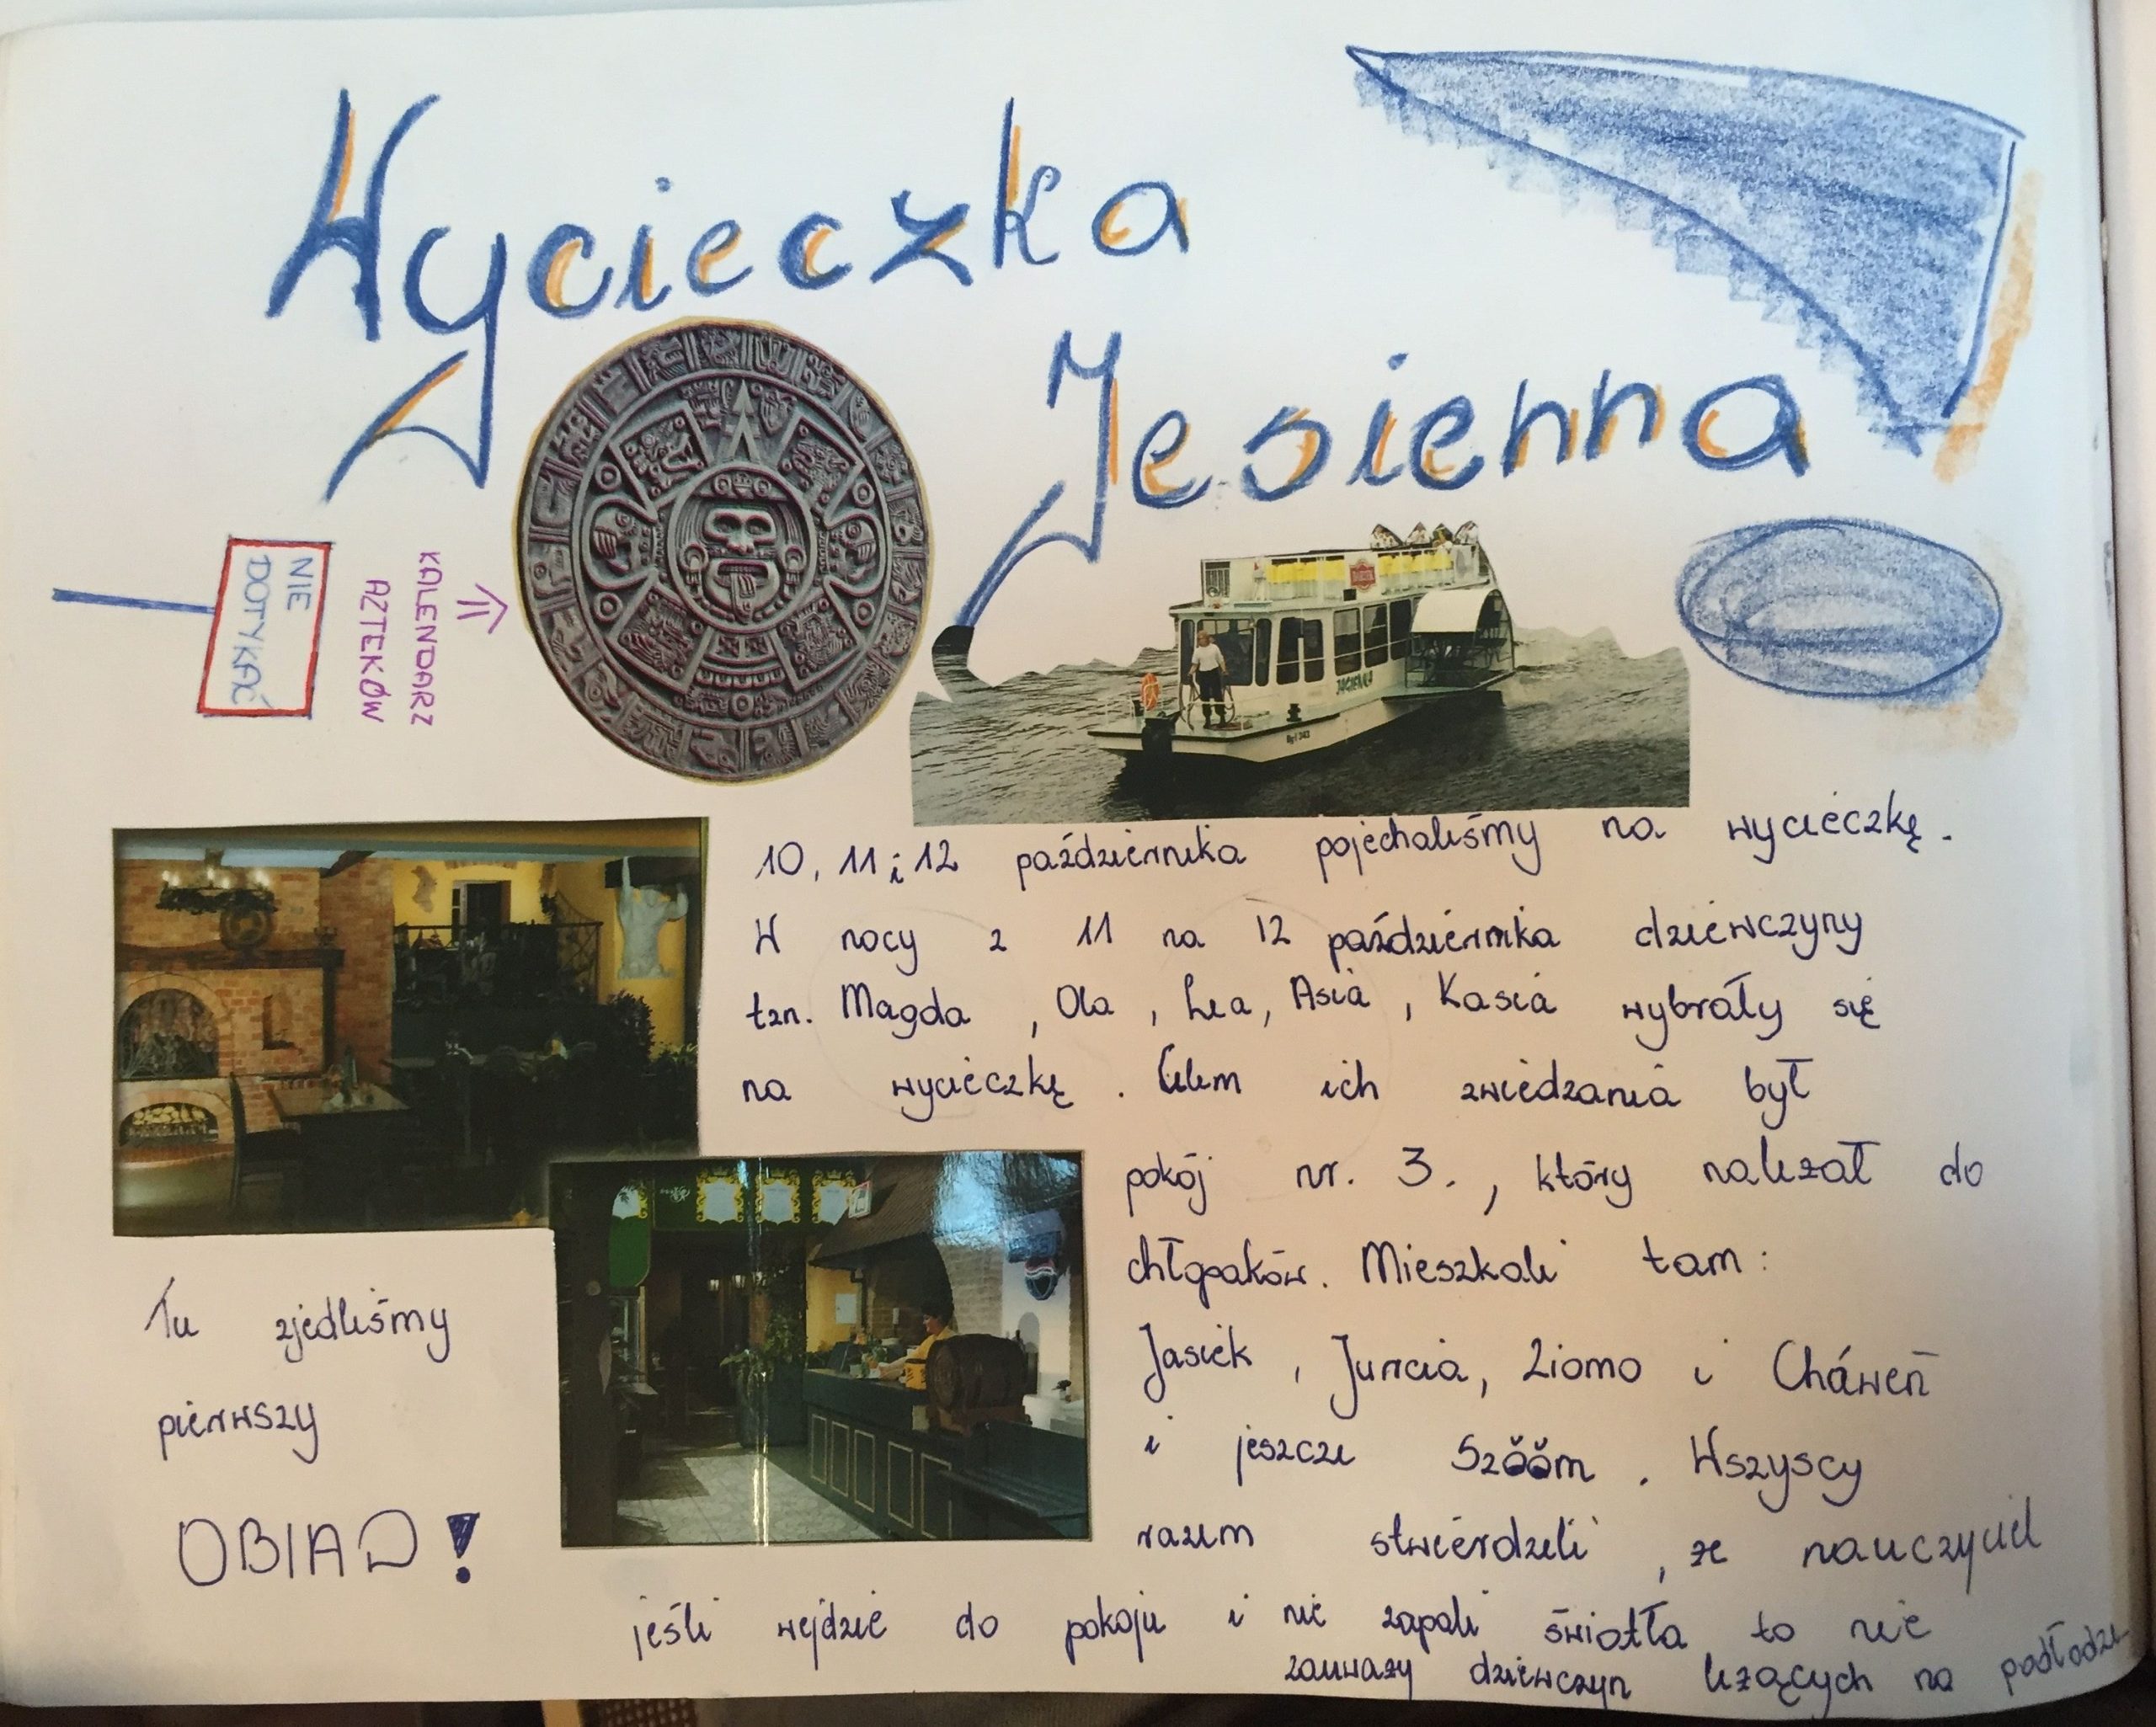 Wycieczka
Jesienna
!
NIE
DOTYKAĆ
KALENDARZ
AZTEKÓW
JAGIENKA
10, 11 i 12 października pojechaliśmy na wycieczkę.
W nocy z 11 na 12 października dziewczyny
tzn. Magda, Ola, Lea, Asia, Kasia wybrały się
na wycieczkę. Celem ich zwiedzania był
pokój nr. 3., który należał do
chłopaków. Mieszkali tam:
Jasiek, Juncia, Ziomo i Cháweń
i jeszcze Szőőm. Wszyscy
razem stwierdzili, że nauczyciel
jeśli wejdzie do pokoju i nie zapali światła to nie
zauważy dziewczyn leżących na podłodze
Tu zjedliśmy
pierwszy
OBIAD!